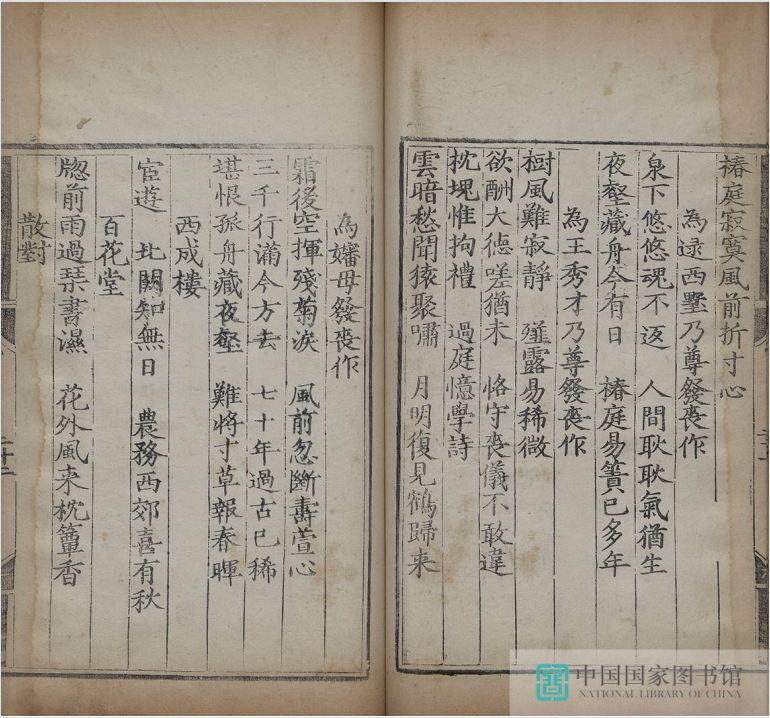 椿庭寂寞風前折寸心
為逯西墅乃尊發喪作
泉下悠悠魂不返 人間耿耿氣猶生
夜壑藏舟今有日 椿庭易簀已多年
為王秀才乃尊發喪作
樹風難寂靜 薤露易稀微
欲酬大德嗟猶未 恪守喪儀不敢違
枕塊惟拘禮 過庭憶學詩
雲暗愁聞猿聚嘯 月明復見鶴歸来
為嬸母發喪作
霜後空揮殘菊淚 風前忽斷壽萱心
三千行滿今方去 七十年過古已稀
堪恨孤舟藏夜壑 難將寸草報春暉
西成樓
宦遊北闕知無日 農務西郊喜有秋
百花堂
牕前雨過琹書濕 花外風来枕簟香
散對
中国国家图书馆
NATIONAL LIBRARY OF CHINA